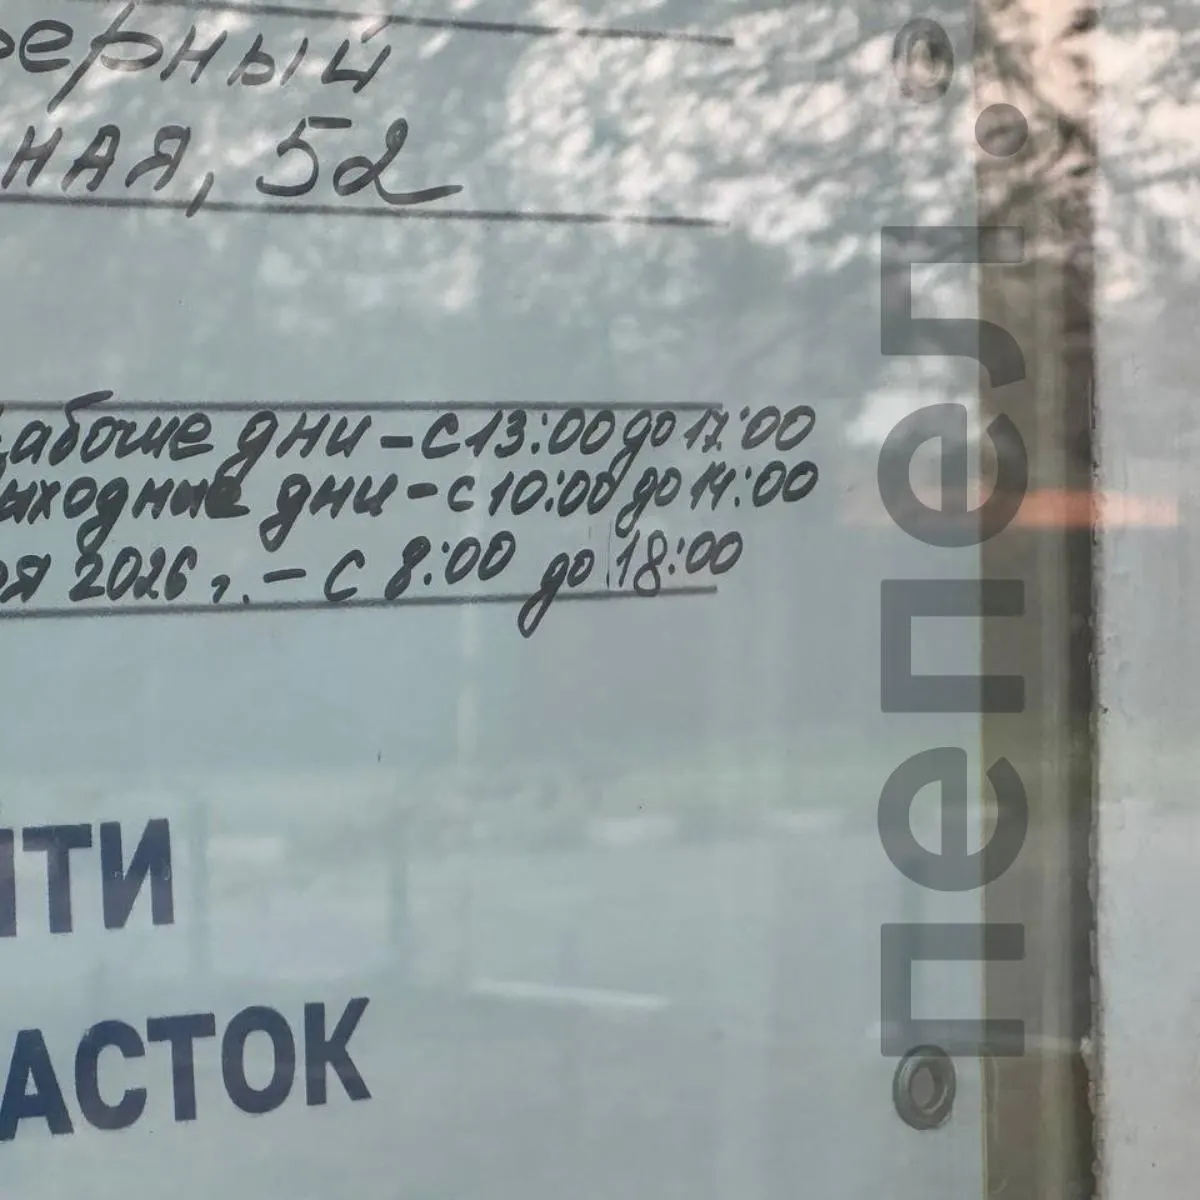 ерный
ная, 52
рабочие дни - с 13:00 до 17:00
выходные дни - с 10:00 до 14:00
я 2026 г. - с 8:00 до 18:00
ЙТИ
АСТОК
пепел.